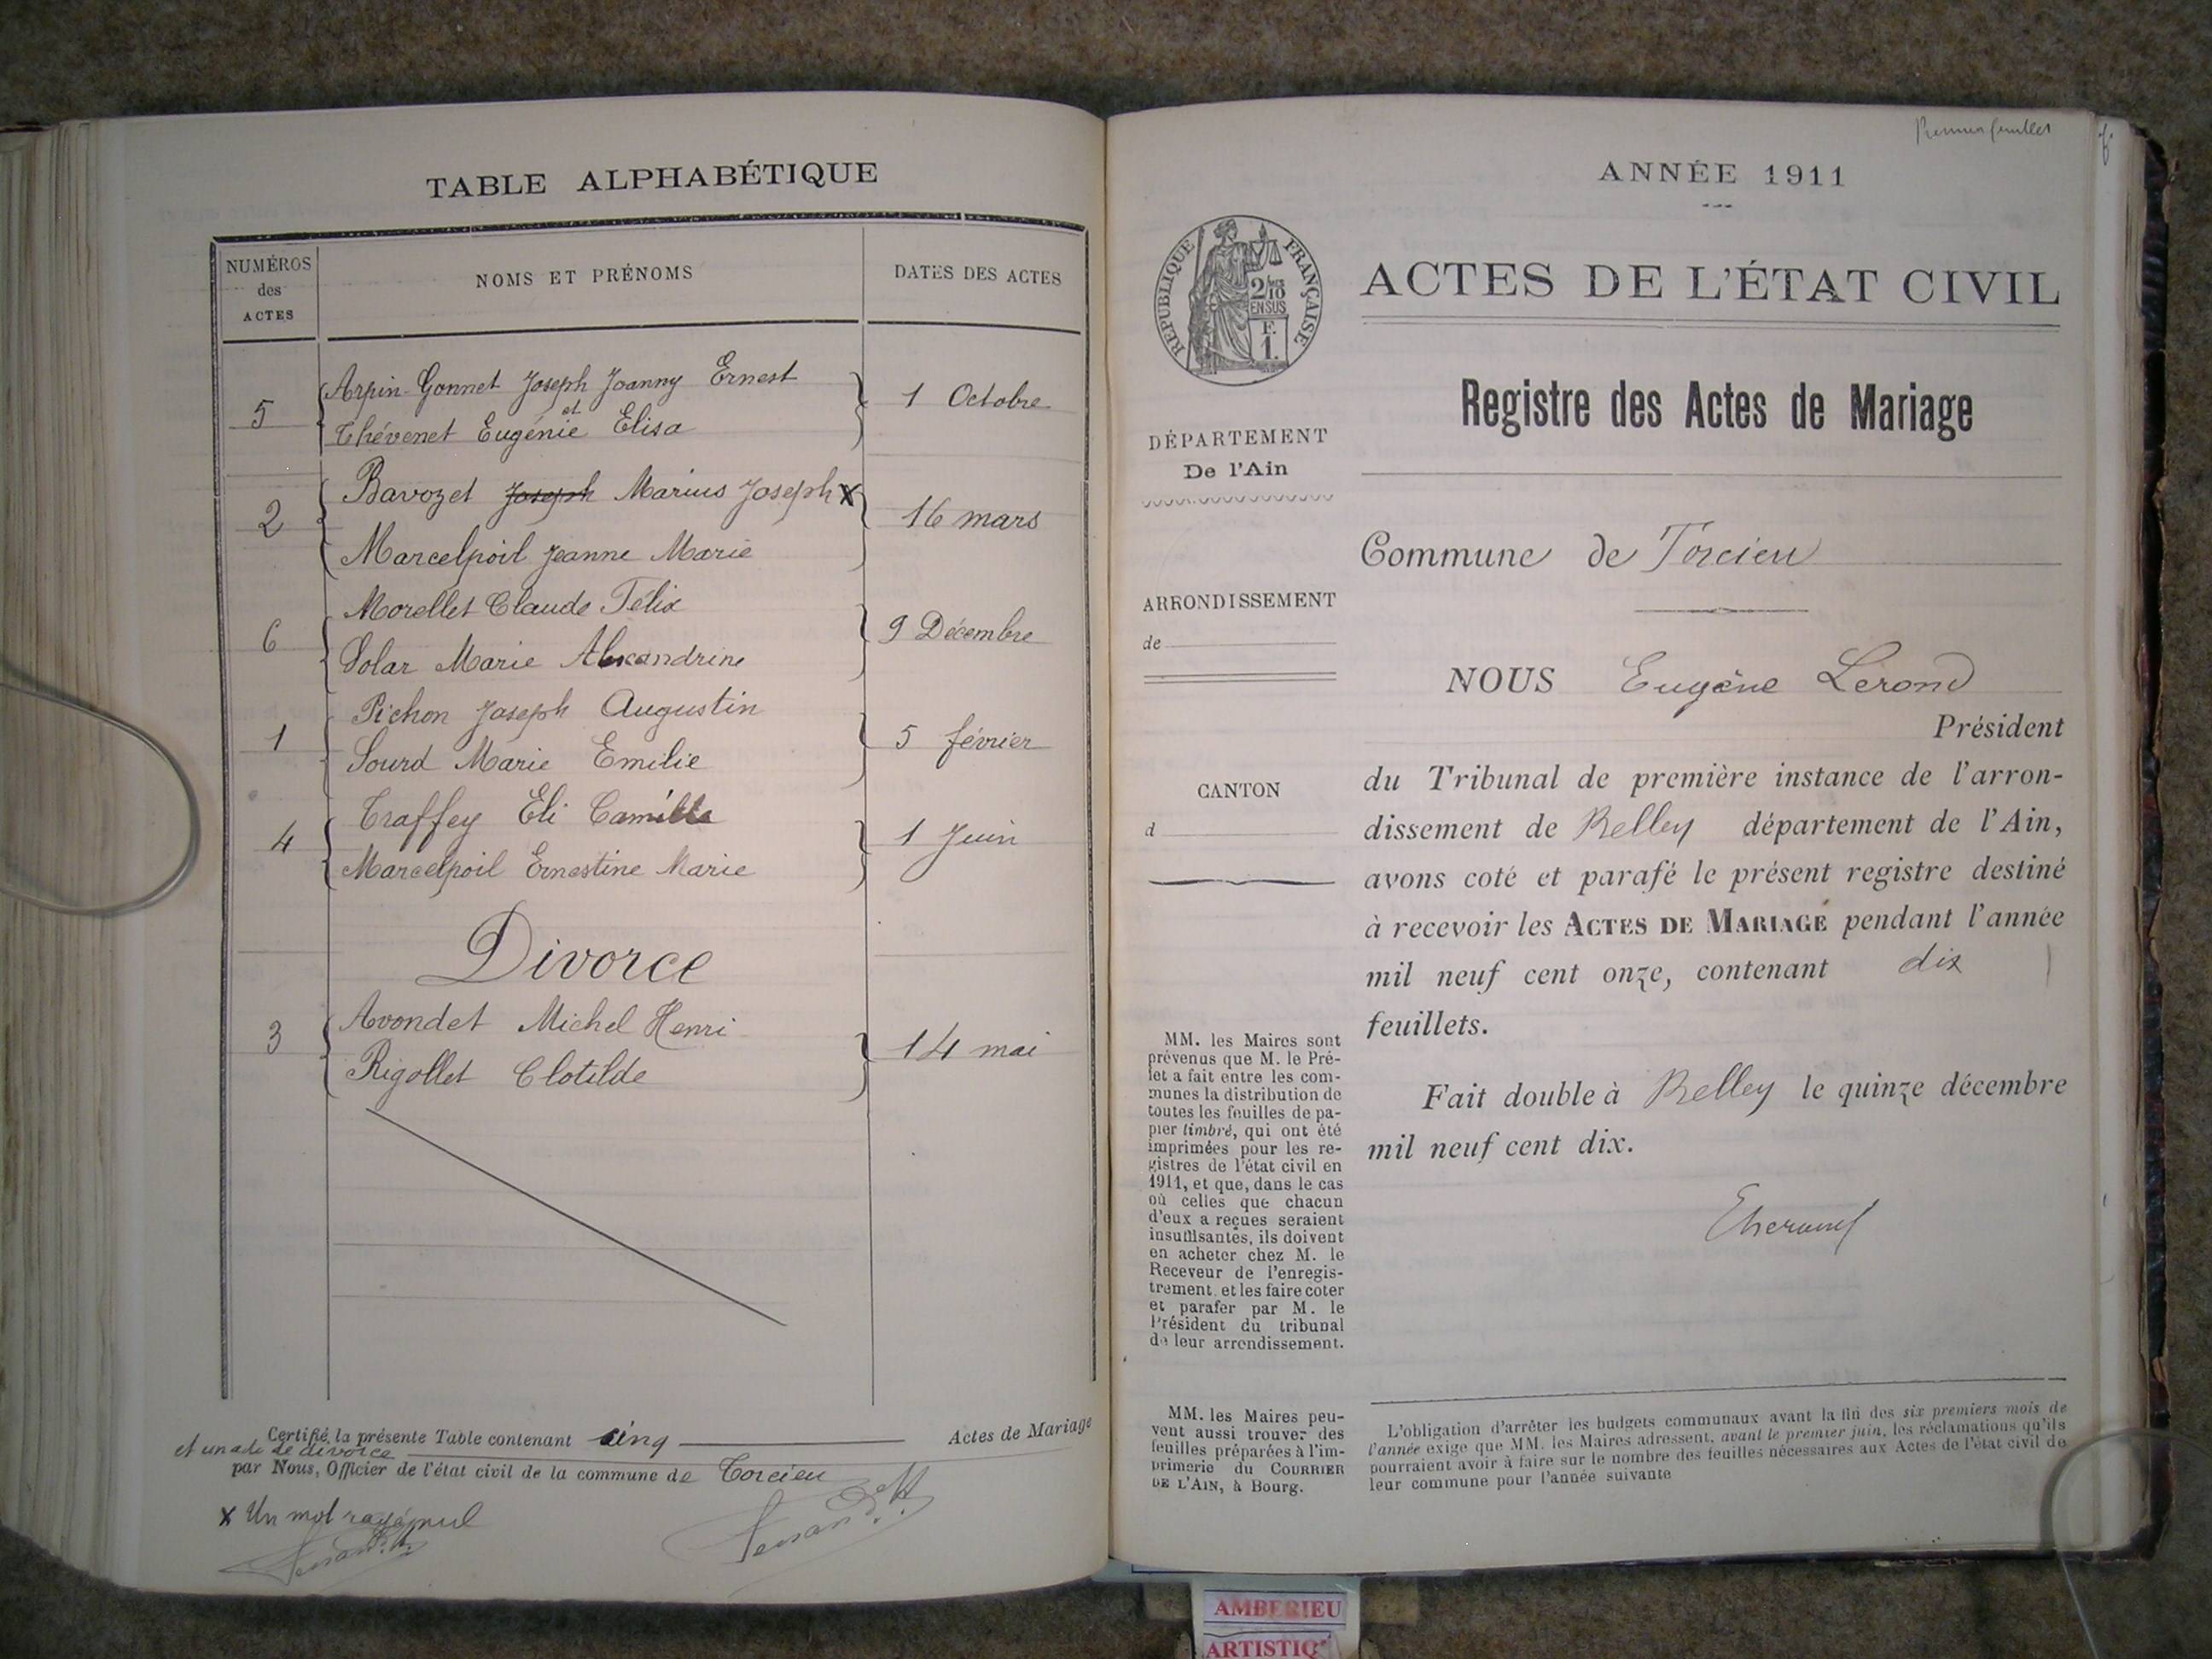 TABLE ALPHABÉTIQUE
NUMÉROS
des
ACTES
NOMS ET PRÉNOMS
DATES DES ACTES
Arpin-Gonnet Joseph Joanny Ernest
et
5
1 Octobre
Thévenet Eugénie Elisa
Bavozet Joseph Marius Joseph x
2
16 mars
Marcelpoil Jeanne Marie
Morellet Claude Félix
6
9 Décembre
Solar Marie Alexandrine
Pichon Joseph Augustin
1
5 février
Sourd Marie Emilie
Traffey Eli Camille
4
1 Juin
Marcelpoil Ernestine Marie
Divorce
Avondet Michel Henri
3
14 mai
Rigollet Clotilde
Certifié la présente Table contenant cinq Actes de Mariage
et un acte de divorce
par Nous, Officier de l'état civil de la commune de Torcieu
x Un mot rayé nul
Premier feuillet
ANNÉE 1911
RÉPUBLIQUE FRANÇAISE
2/10
EN SUS
F.
1.
ACTES DE L'ÉTAT CIVIL
Registre des Actes de Mariage
DÉPARTEMENT
De l'Ain
ARRONDISSEMENT
de
CANTON
d
Commune de Torcieu
NOUS Eugène Lerond
Président
du Tribunal de première instance de l'arron-
dissement de Belley département de l'Ain,
avons coté et parafé le présent registre destiné
à recevoir les ACTES DE MARIAGE pendant l'année
mil neuf cent onze, contenant dix
feuillets.
Fait double à Belley le quinze décembre
mil neuf cent dix.
MM. les Maires sont
prévenus que M. le Pré-
fet a fait entre les com-
munes la distribution de
toutes les feuilles de pa-
pier timbré, qui ont été
imprimées pour les re-
gistres de l'état civil en
1911, et que, dans le cas
où celles que chacun
d'eux a reçues seraient
insuffisantes, ils doivent
en acheter chez M. le
Receveur de l'enregis-
trement et les faire coter
et parafer par M. le
Président du tribunal
de leur arrondissement.
MM. les Maires peu-
vent aussi trouver des
feuilles préparées à l'im-
primerie du COURRIER
DE L'AIN, à Bourg.
L'obligation d'arrêter les budgets communaux avant la fin des six premiers mois de
l'année exige que MM. les Maires adressent, avant le premier juin, les réclamations qu'ils
pourraient avoir à faire sur le nombre des feuilles nécessaires aux Actes de l'état civil de
leur commune pour l'année suivante
AMBERIEU
ARTISTIQ